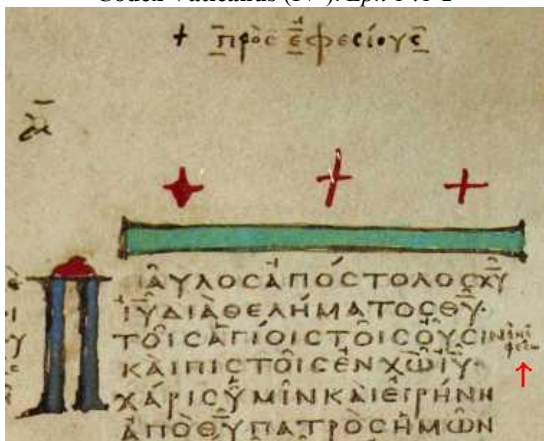 Codex Vaticanus (IV ). Eph. 1 :1-2
+ πρὸϲ ἐφεϲίουϲ
ᾱ
ΠΑΥΛΟϹΑΠΟϹΤΟΛΟϹΧ̅Υ̅
Ι̅Υ̅ΔΙΑΘΕΛΗΜΑΤΟϹΘ̅Υ̅·
ΤΟΙϹΑΓΙΟΙϹΤΟΙϹΟΥϹΙΝ ἐν ἐφέϲω
ΚΑΙΠΙϹΤΟΙϹΕΝΧ̅Ω̅Ι̅Υ̅·
ΧΑΡΙϹΥΜΙΝΚΑΙΕΙΡΗΝΗ
ΑΠΟΘ̅Υ̅ΠΑΤΡΟϹΗΜΩΝ